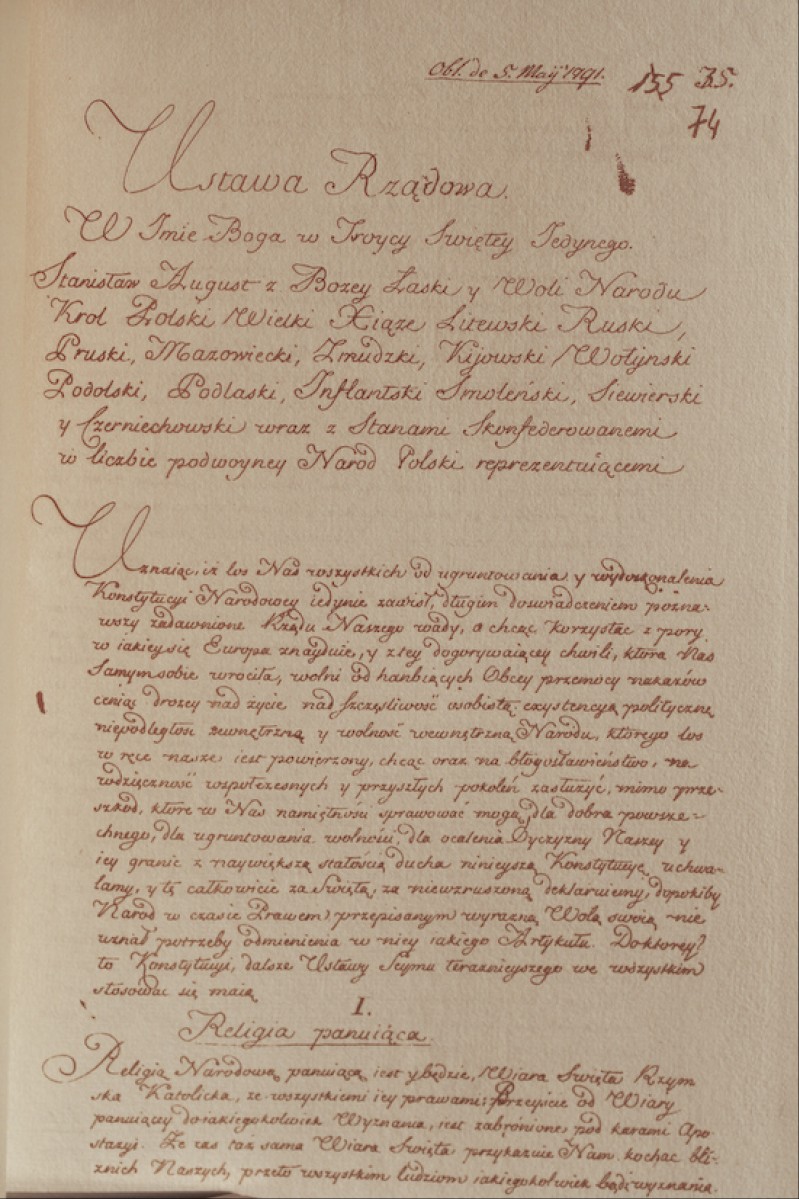 Obl. de 5. Maÿ 1791.
155 35.
74
Ustawa Rządowa.
W Imie Boga w Troycy Swiętey Jedynego.
Stanisław August z Bozey Łaski y Woli Narodu
Krol Polski Wielki Xiąze Litewski Ruski,
Pruski, Mazowiecki, Zmudzki, Kijowski Wołynski
Podolski, Podlaski, Inflantski Smoleński, Siewierski
y Czerniechowski wraz z Stanami Skonfederowanemi
w liczbie podwoyney Narod Polski reprezentuiącemi
Uznaiąc, iż los Nas wszystkich od ugruntowania y wydoskonalenia
Konstytucyi Narodowey iedynie zawisł, długim doswiadczeniem pozna-
wszy zadawnione Rządu Naszego wady, a chcąc korzystać z pory
w iakiey się Europa znayduie, y z tey dogorywaiącey chwili, ktora Nas
samym sobie wrociła, wolni od hanbiących Obcey przemocy nakazów
ceniąc drozey nad życie nad szczęsliwość osobistą; exystencyą polityczną
niepodległość zewnętrzną y wolność wewnętrzną Narodu, ktorego los
w ręce nasze iest powierzony, chcąc oraz na błogosławieństwo, na
wdzięczność wspołczesnych y przyszłych pokoleń zasłużyć, mimo prze-
szkod, ktore w Nas namiętności sprawować mogą, dla dobra powsze-
chnego, dla ugruntowania wolności, dla ocalenia Oyczyzny Naszey y
iey granic z naywiększą stałością ducha ninieyszą Konstytucyę uchwa-
lamy, y tę całkowicie za Swiętą, za niewzruszoną deklaruiemy, dopokiby
Narod w czasie Prawem przepisanym wyrazną Wolą swoią nie
uznał potrzeby odmienienia w niey iakiego Artykułu. Doktorey
to Konstytucyi, dalsze Ustawy Seymu teraznieyszego we wszystkim
stosować się maią
I.
Religia panuiąca.
Religią Narodową panuiącą iest y będzie, Wiara Swięta Rzym
ska Katolicka, ze wszystkiemi iey prawami; Przeyście od Wiary
panuiącey do iakiegokolwiek Wyznania, iest zabronione pod karami Apo
stazyi. Ze zas taż sama Wiara Swięta przykazuie Nam kochac bli-
znich Naszych, przeto wszystkim ludziom iakiegokolwiek bądź wyznania